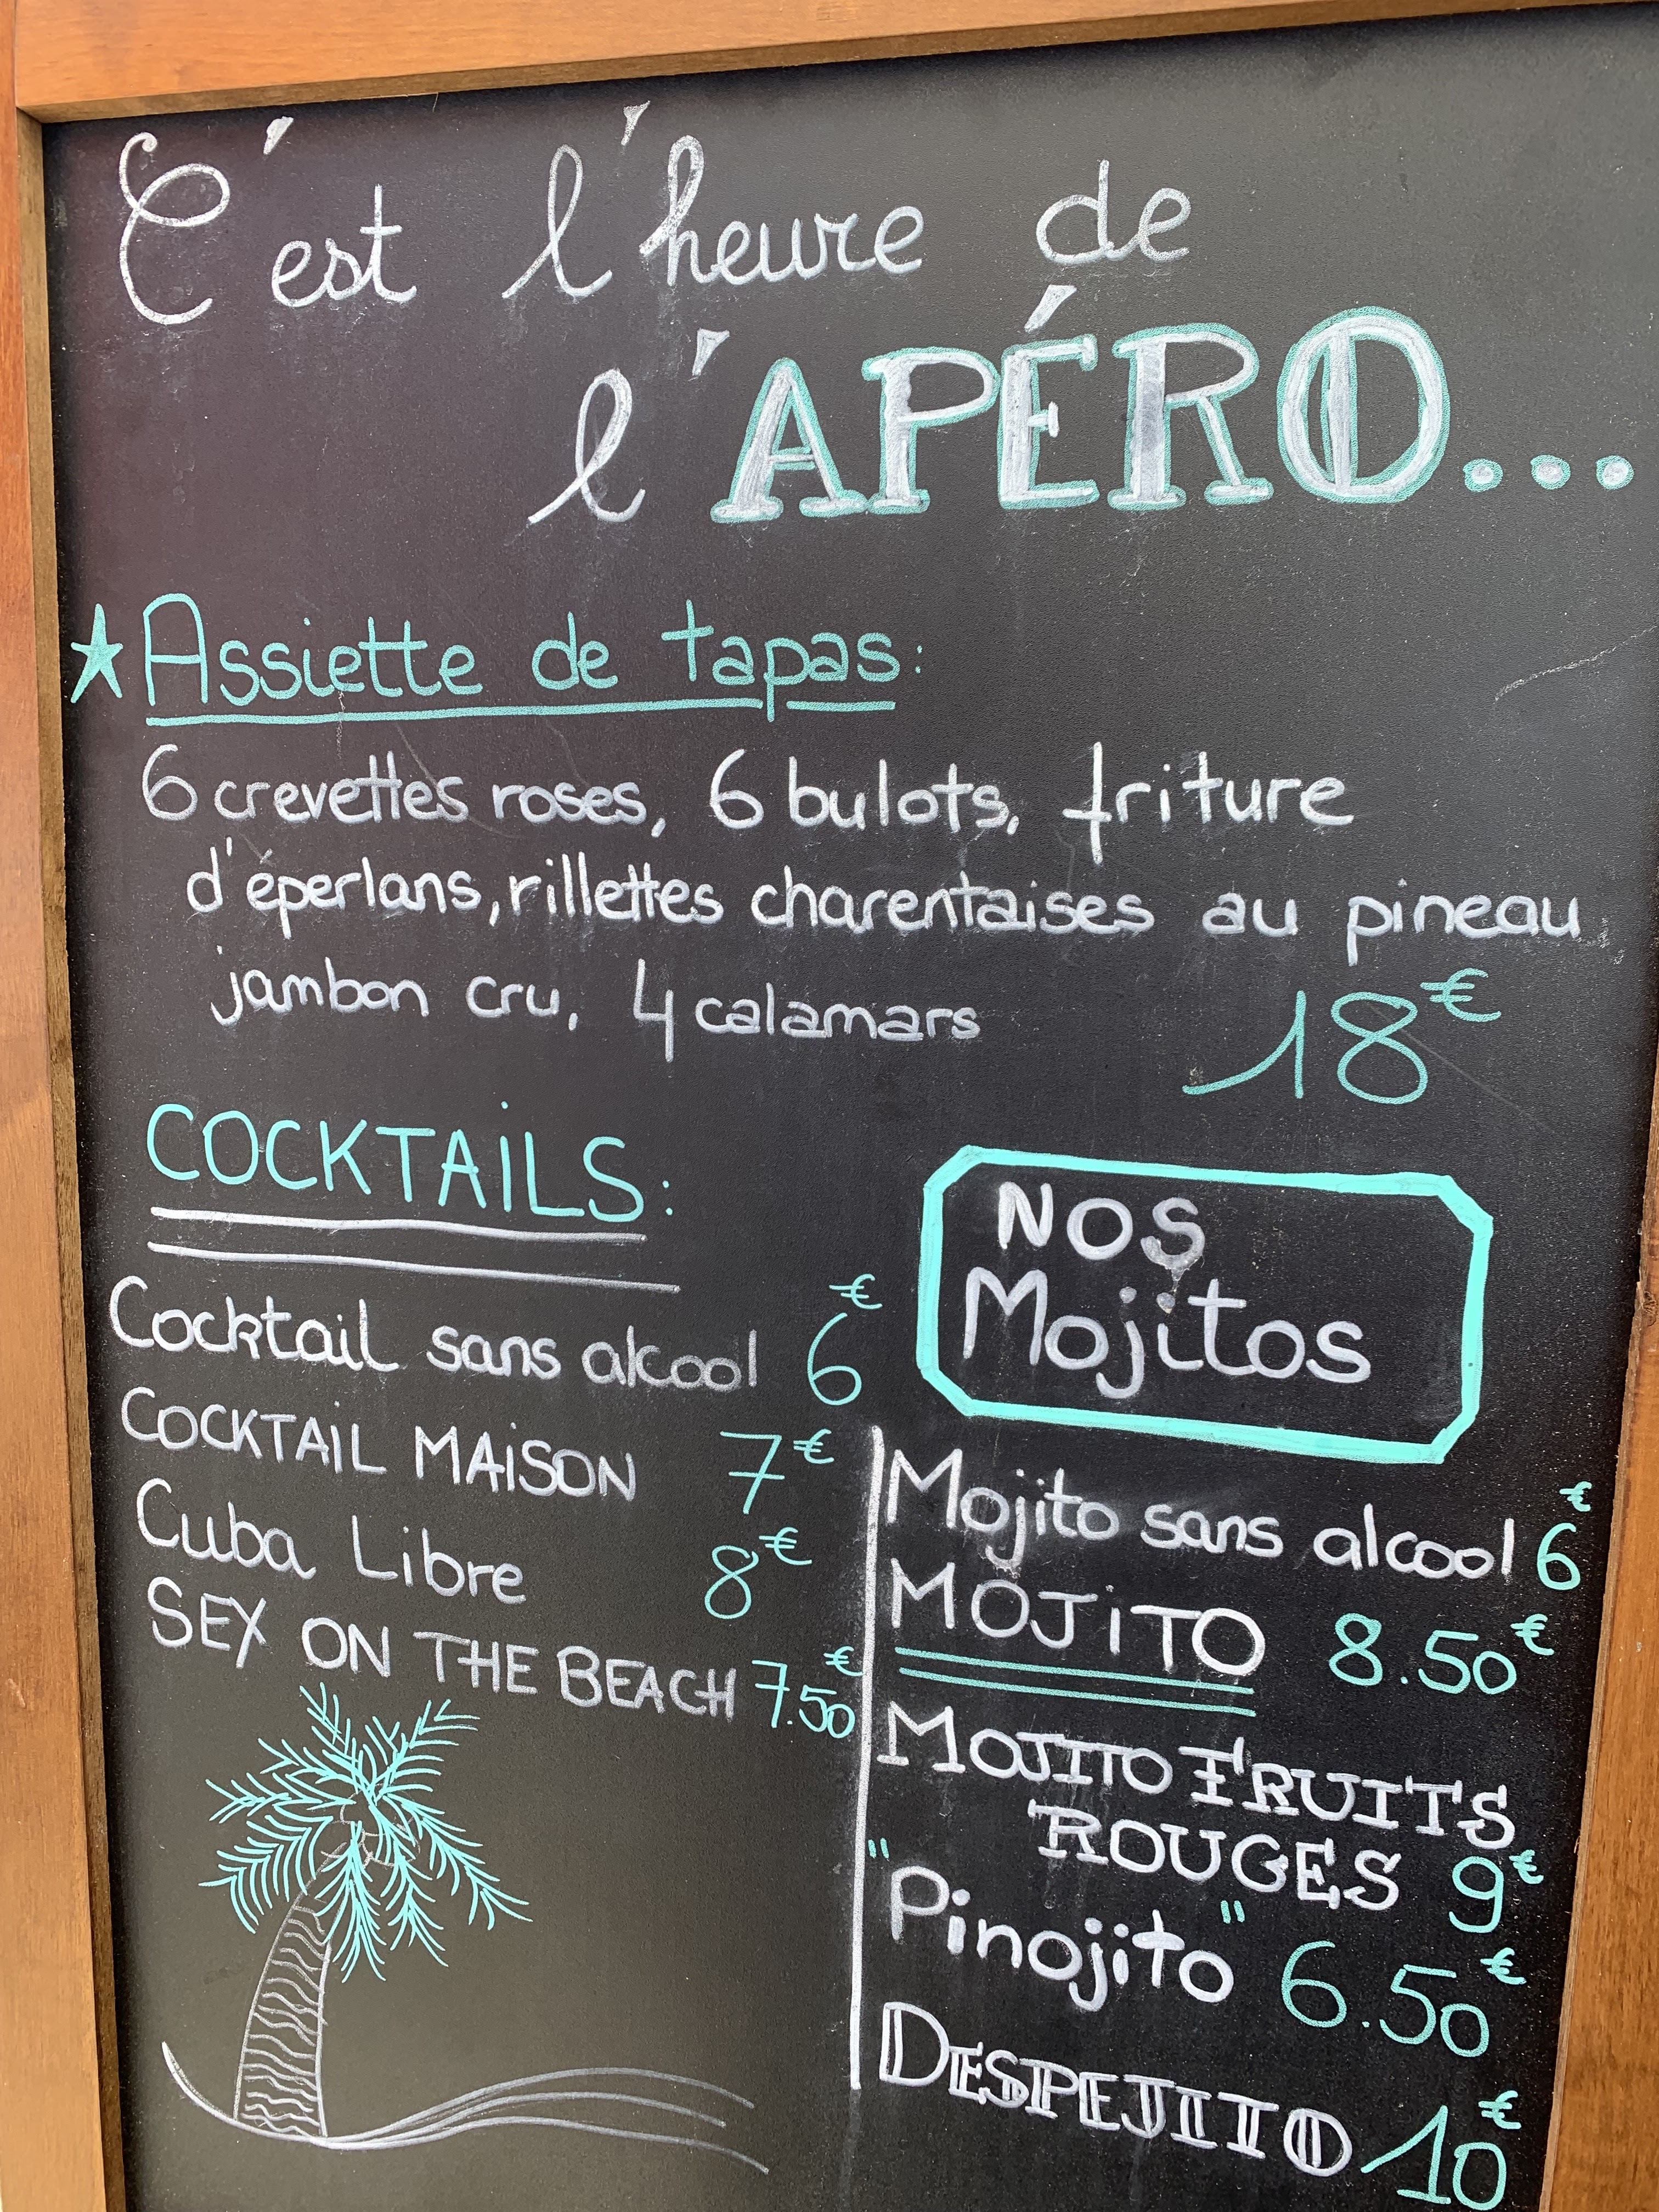 C'est l'heure de
l'APÉRO...
Assiette de tapas:
6 crevettes roses, 6 bulots, friture
d'éperlans, rillettes charentaises au pineau
jambon cru, 4 calamars
18€
COCKTAILS:
Cocktail sans alcool 6€
COCKTAIL MAISON 7€
Cuba Libre 8€
SEX ON THE BEACH 7.50€
NOS
Mojitos
Mojito sans alcool 6€
MOJITO 8.50€
MOJITO FRUITS
ROUGES 9€
"Pinojito" 6.50€
DESPEJITO 10€